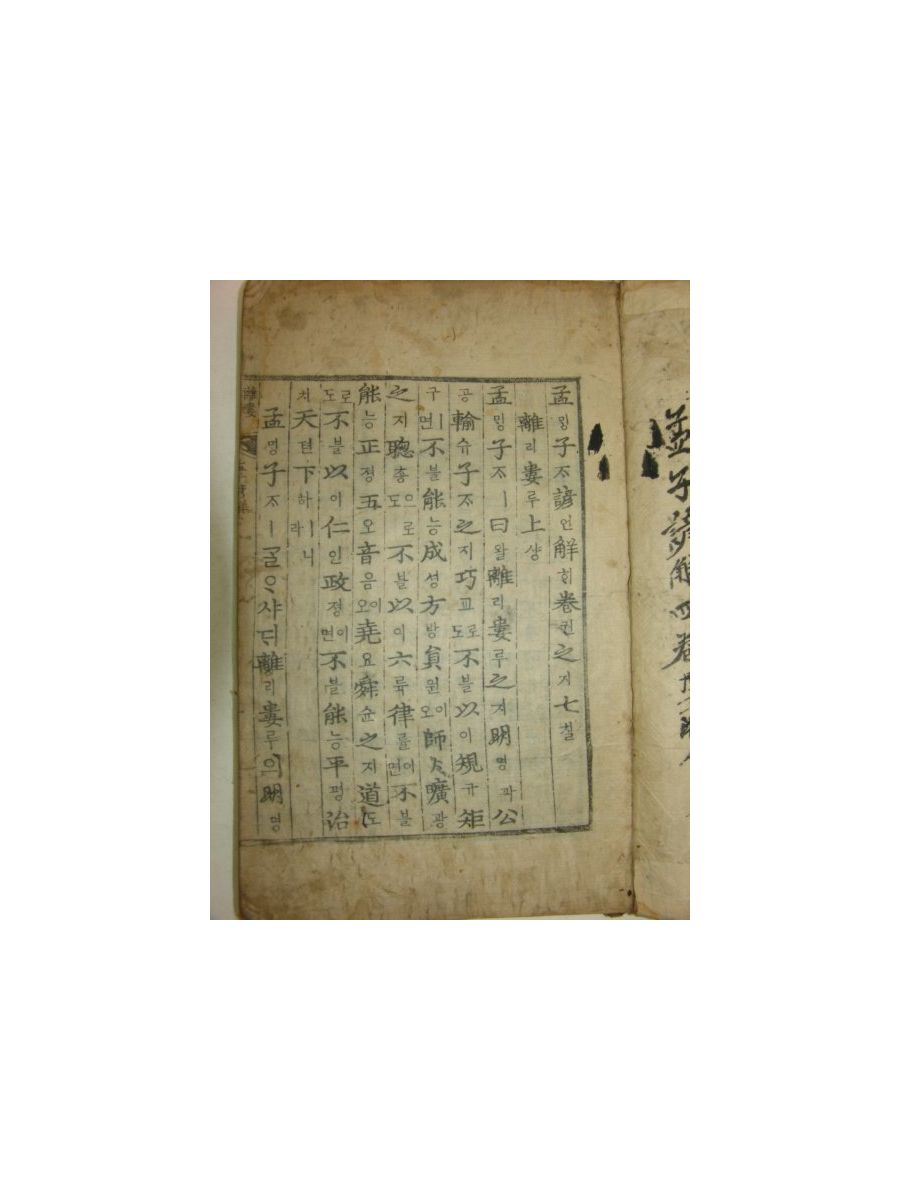 孟子諺解四卷
孟ᄆᆡᇰ子ᄌᆞ諺언解ᄒᆡ卷권之지七칠
離리婁루上샹
孟ᄆᆡᇰ子ᄌᆞㅣ曰왈離리婁루之지明명과公
공輸슈子ᄌᆞ之지巧교로도不블以이規규矩
구ㅣ면不블能능成셩方방員원이오師ᄉᆞ曠광
之지聰총으로도不블以이六륙律률이면不블
能능正졍五오音음이오堯요舜슌之지道도
로도不블以이仁인政졍이면不블能능平평治
치天텬下하ㅣ니라
孟ᄆᆡᇰ子ᄌᆞㅣᄀᆞᆯᄋᆞ샤ᄃᆡ離리婁루의明명
離婁